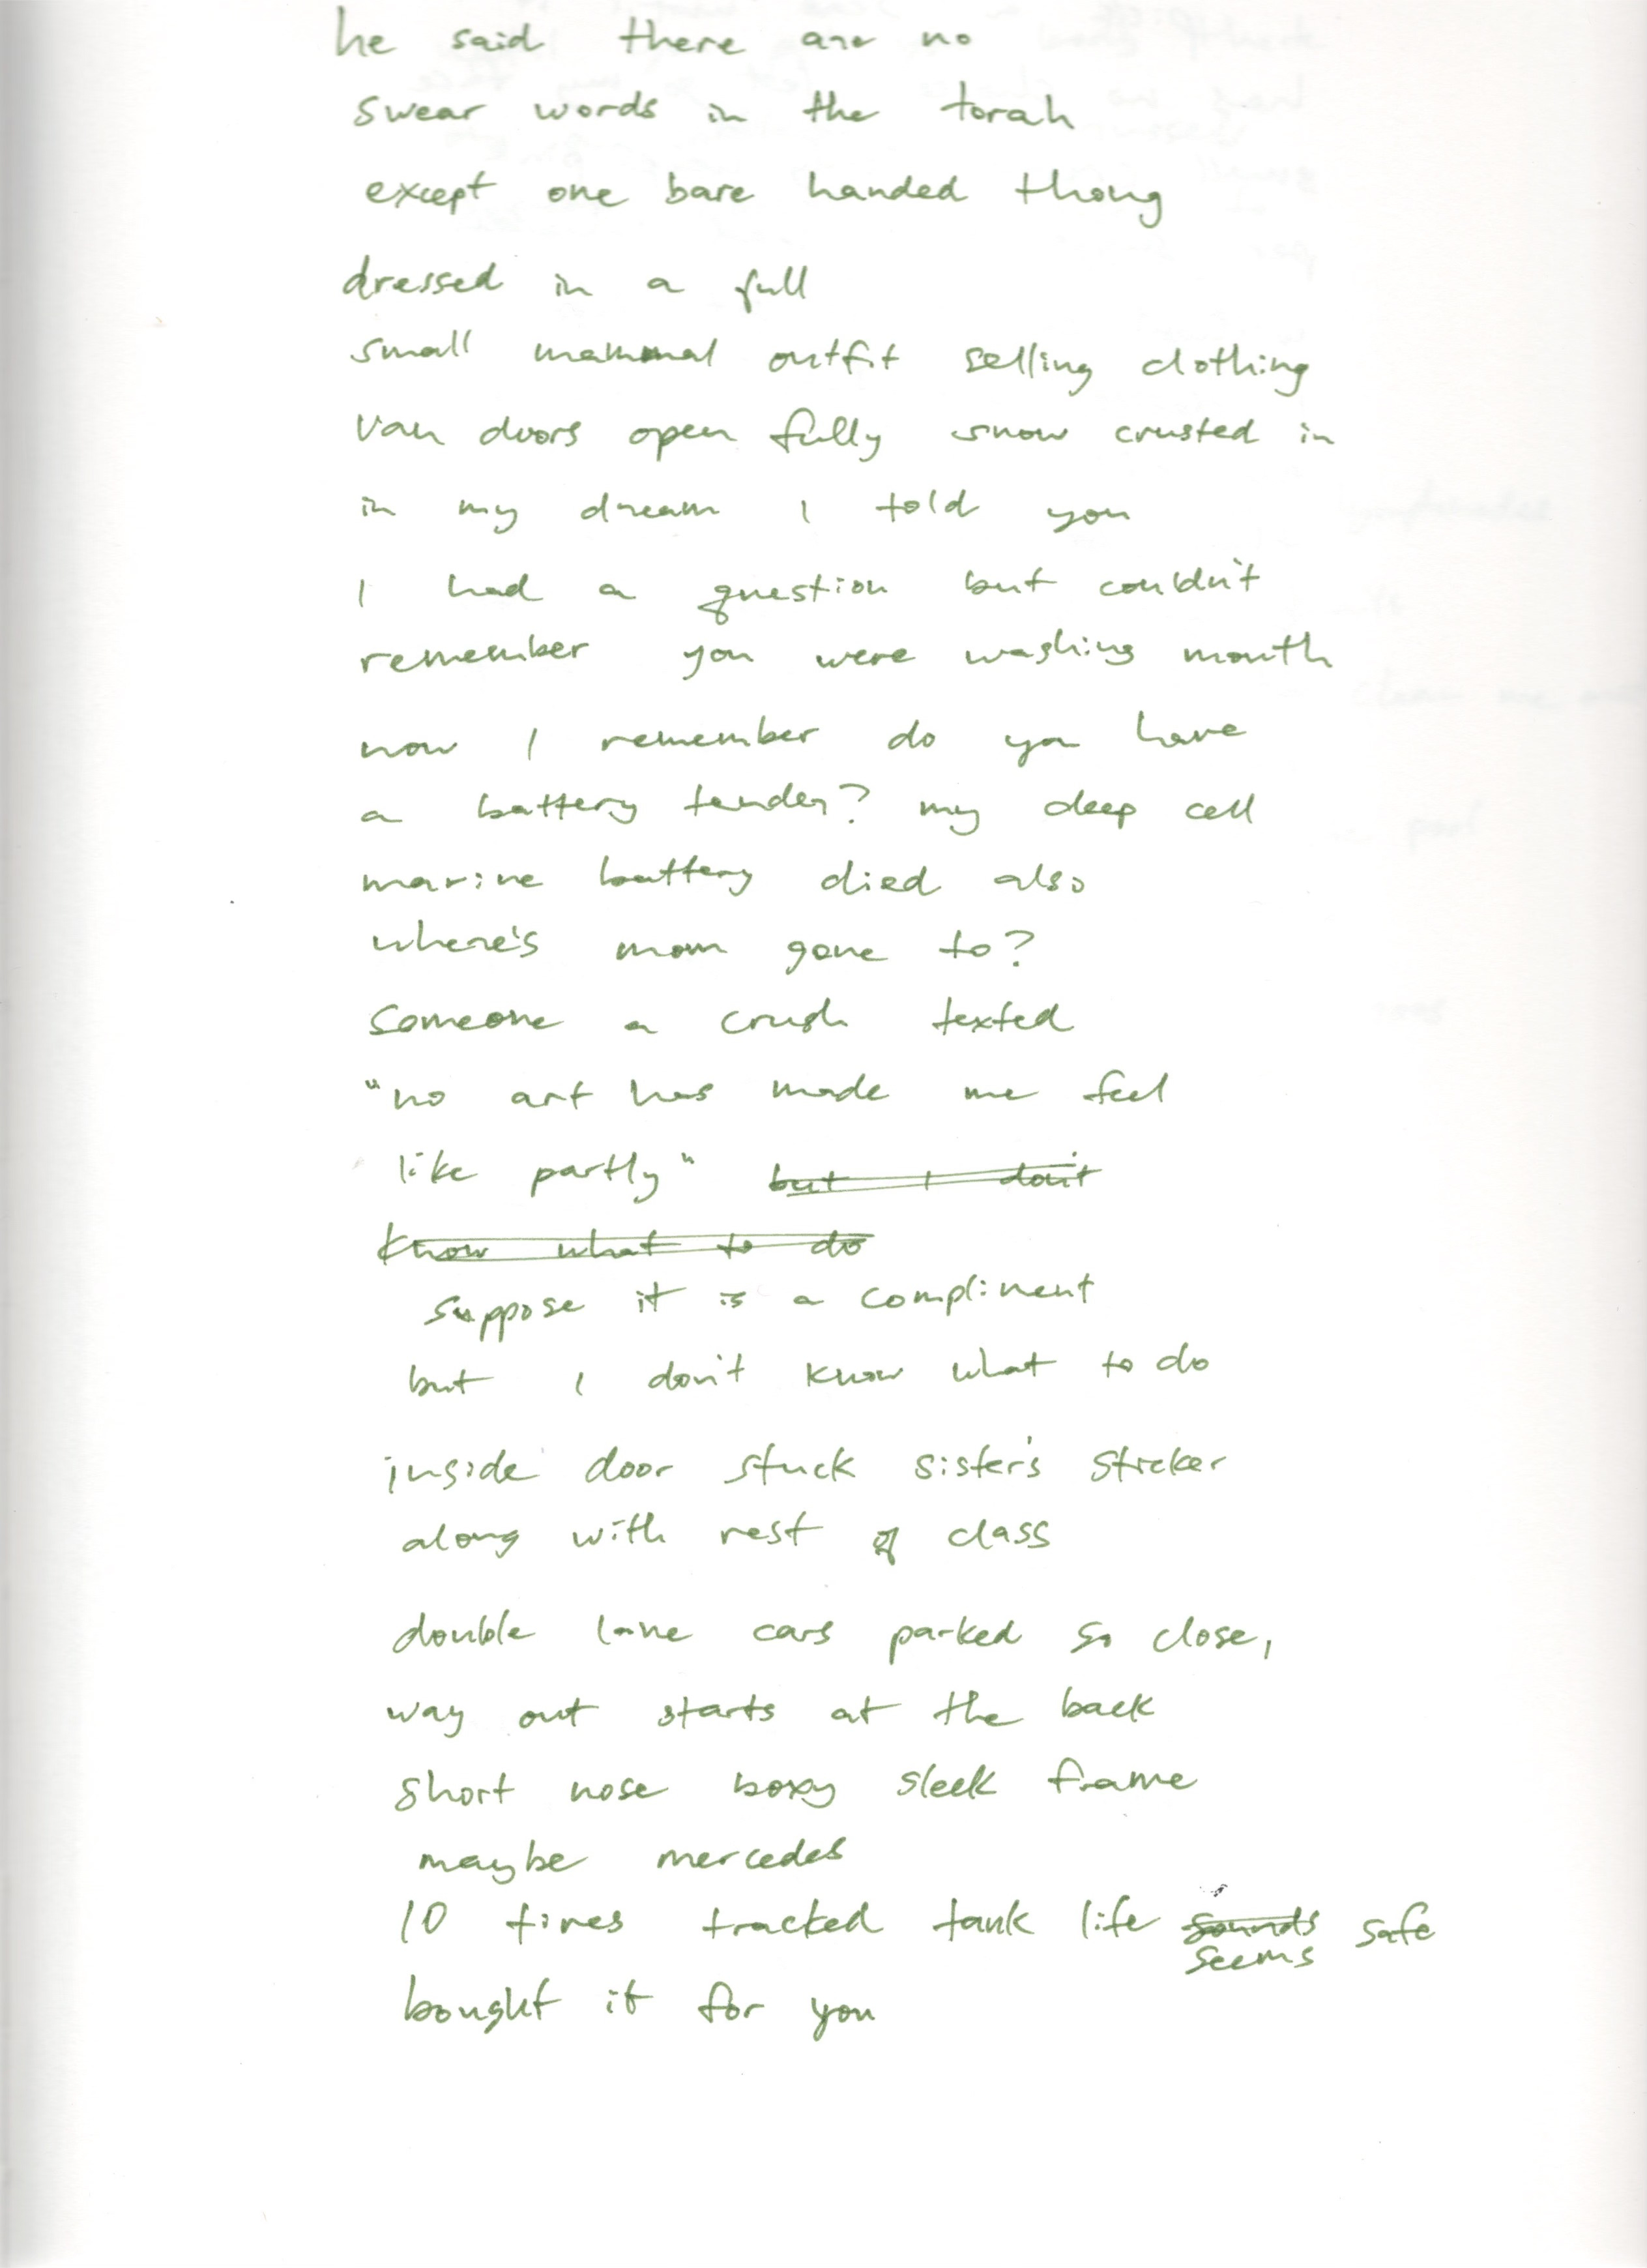 he said there are no
swear words in the torah
except one bare handed thong
dressed in a full
small mammal outfit selling clothing
van doors open fully snow crusted in
in my dream I told you
I had a question but couldn't
remember you were washing mouth
now I remember do you have
a battery tender? my deep cell
marine battery died also
where's mom gone to?
someone a crush texted
"no art has made me feel
like partly" but I don't
know what to do
suppose it is a compliment
but I don't know what to do
inside door stuck sister's sticker
along with rest of class
double lane cars parked so close,
way out starts at the back
short nose boxy sleek frame
maybe mercedes
10 tires tracked tank life sounds safe
seems
bought it for you